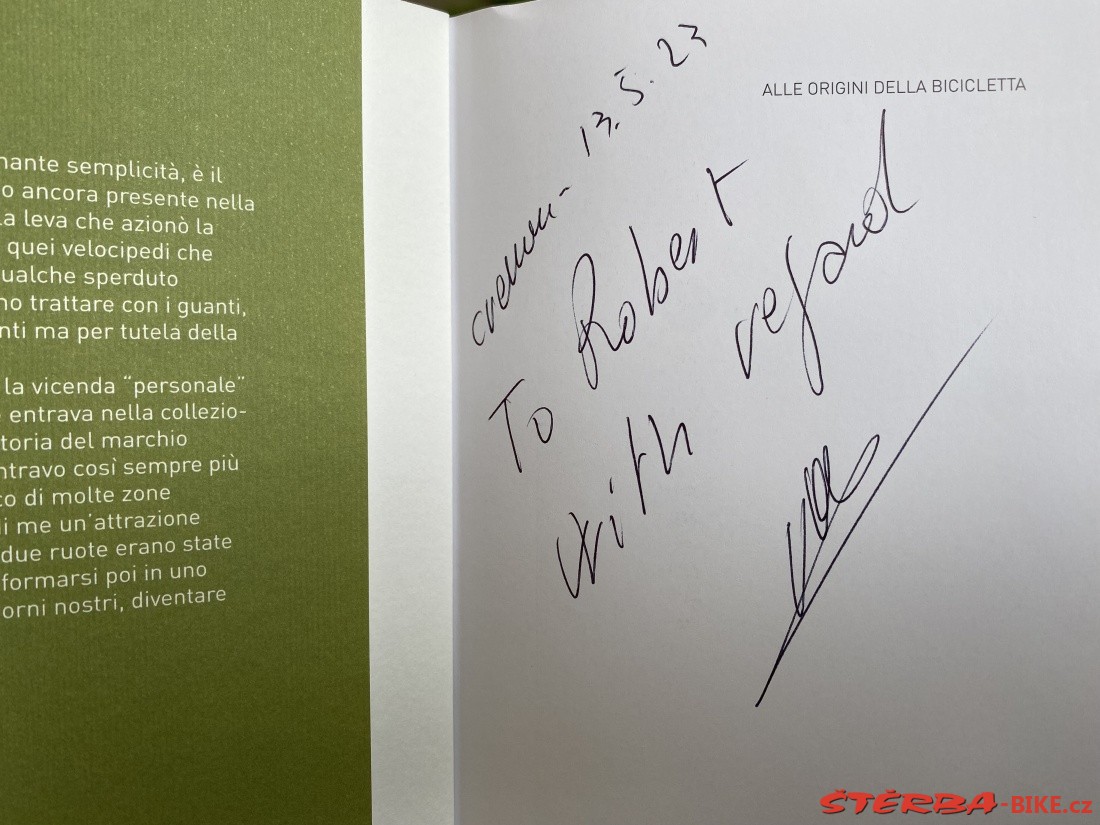 nante semplicità, è il
o ancora presente nella
la leva che azionò la
quei velocipedi che
ualche sperduto
no trattare con i guanti,
nti ma per tutela della
la vicenda “personale”
entrava nella collezio-
toria del marchio
ntravo così sempre più
co di molte zone
di me un’attrazione
due ruote erano state
formarsi poi in uno
orni nostri, diventare
ALLE ORIGINI DELLA BICICLETTA
13.5.23
To Robert
with regard
ŠTĚRBA-BIKE.cz